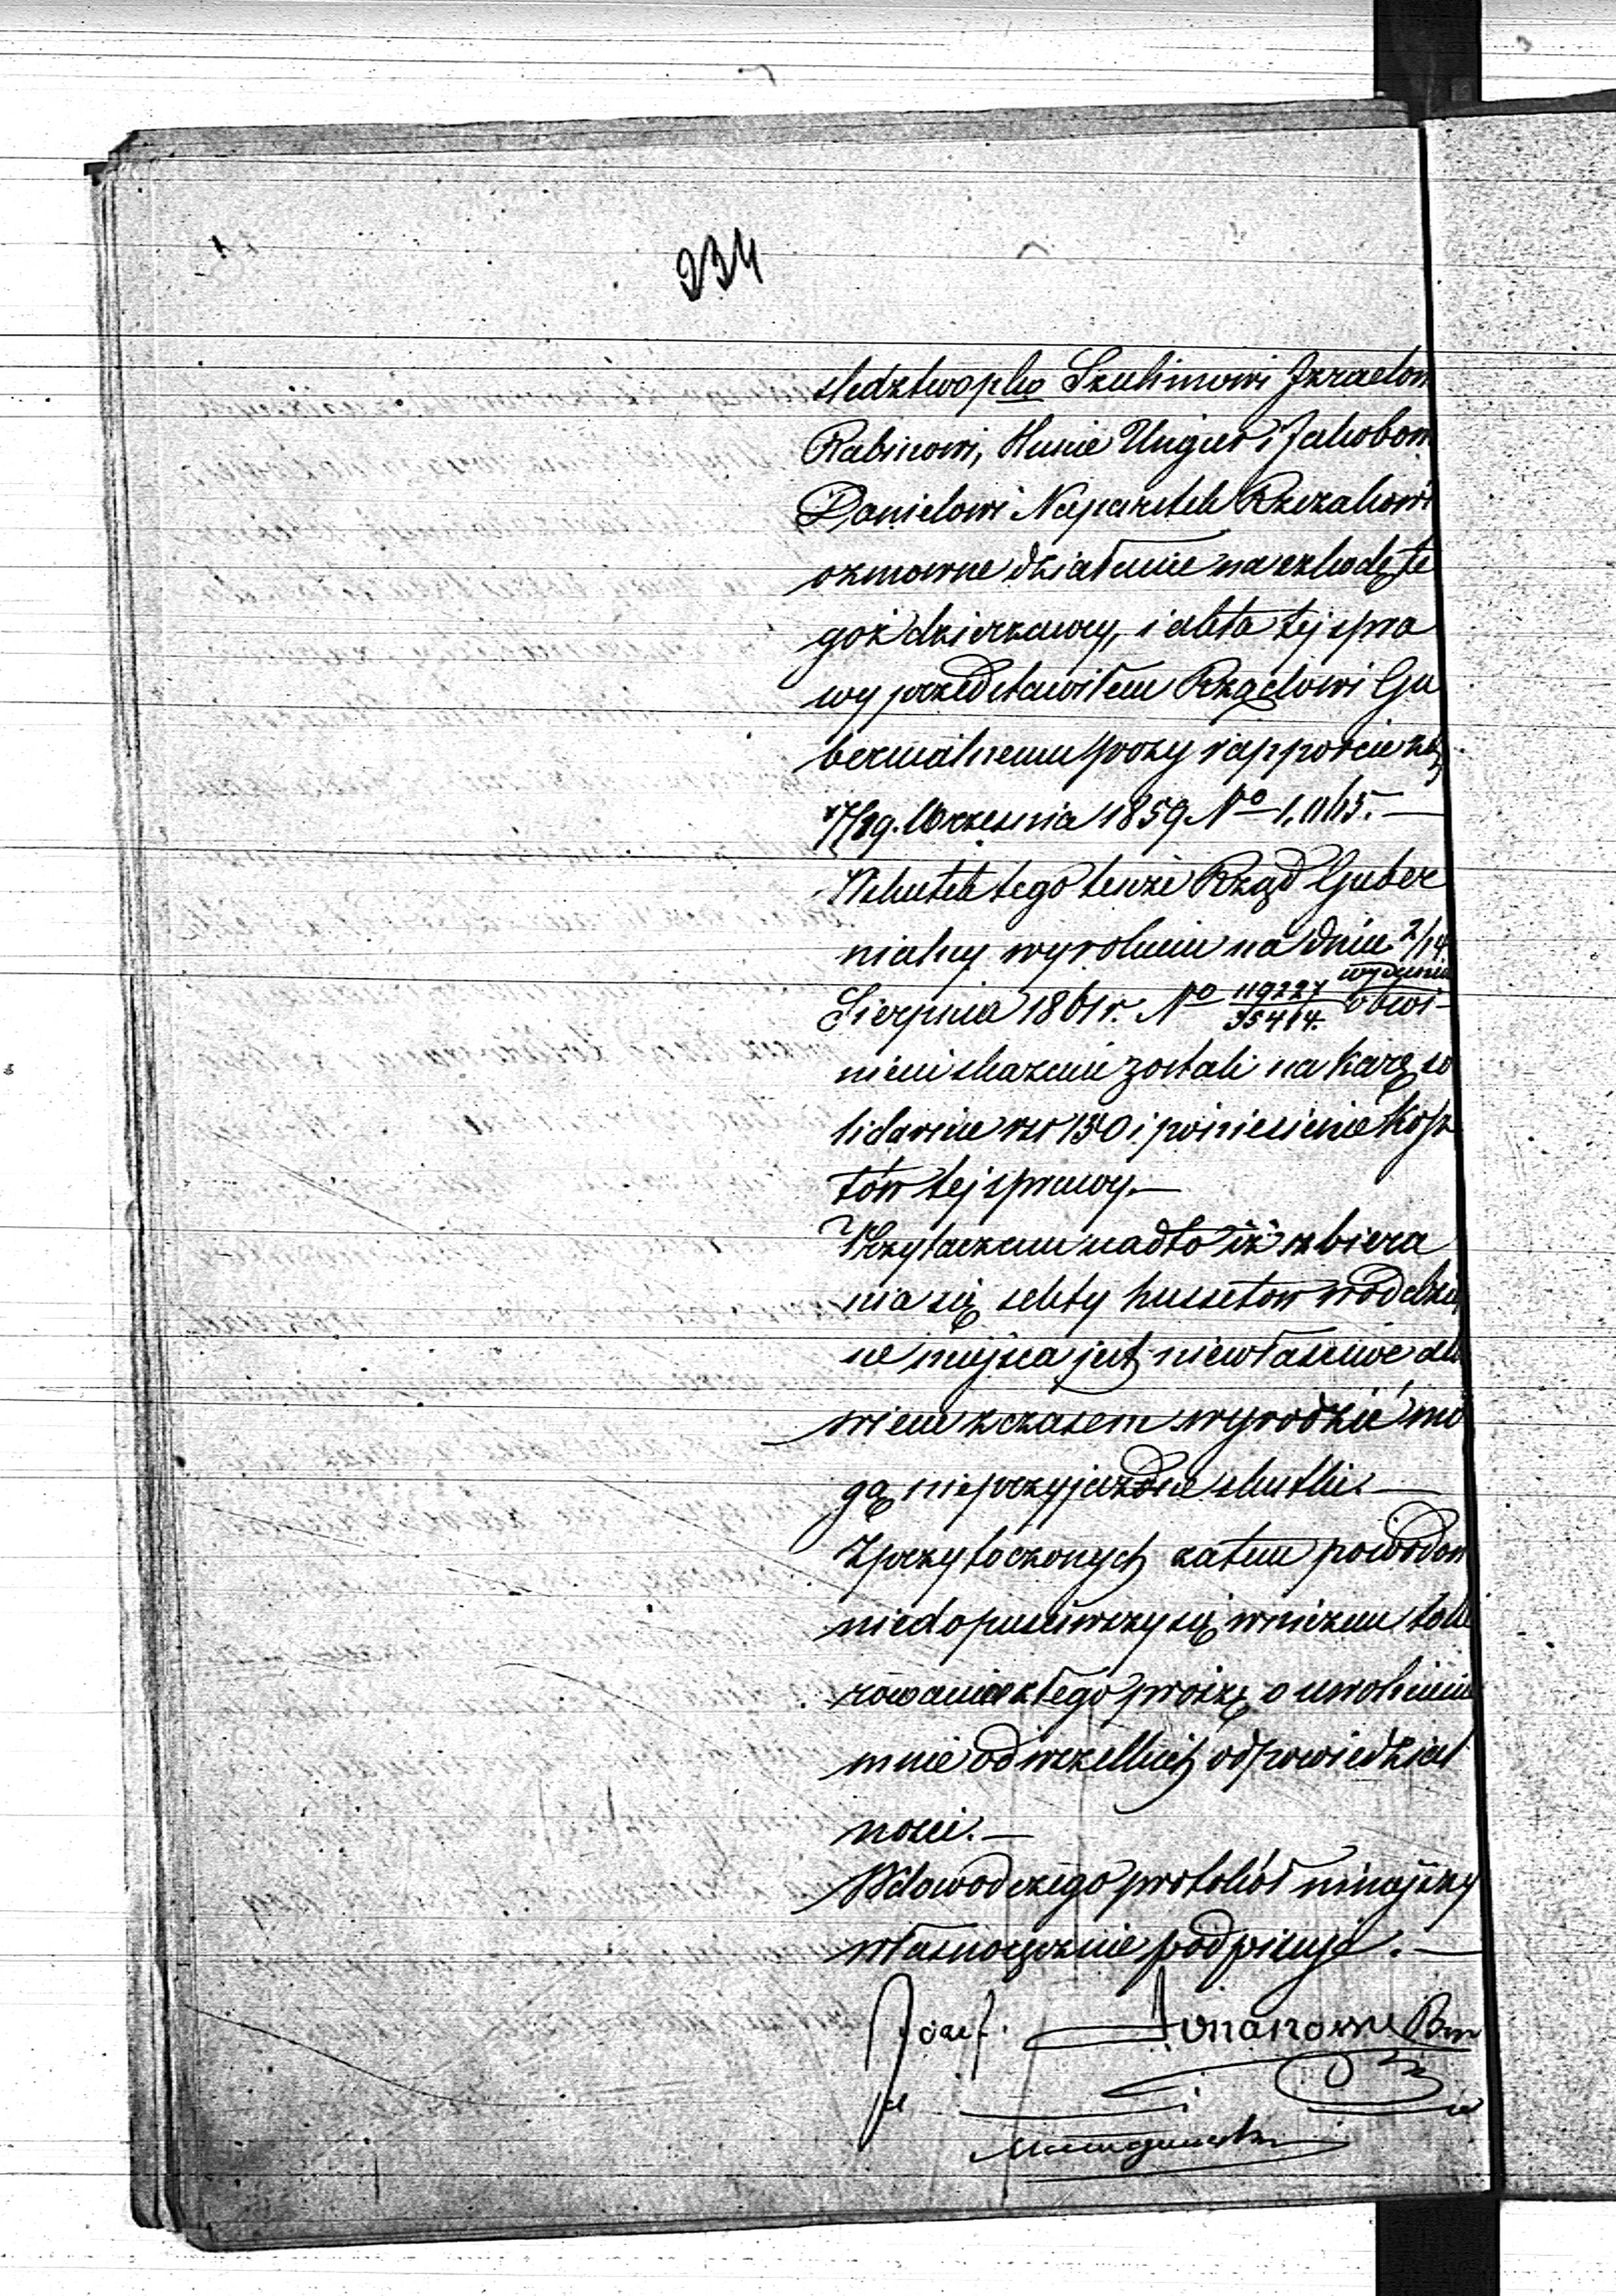 234
sledztwo plco Szulimowi Izraelow
Rabinowi, Hunie Unger i Jakobow
Danielowi Naparstek Rzezakowi
ozmowne działanie na szkodę te
goż dzierzawcy, i akta tej spra
wy przedstawiłem Rządowi Gu
bernialnemu przy rapporcie z d.
17/29. Września 1859 No 1,045. —
Wskutek tego tenże Rząd Guber
nialny wyrokiem na dniu 2/14
Sierpnia 1861 r. No 119227/35414. wydanym obwi-
nieni skazani zostali na karę so
lidarnie rsr 150 i poniesienie kosz
tów tej sprawy. —
Przytaczam nadto iż zbiera
nia się sekty hussytow w oddziel
ne miejsca jest niewłaściwe al
wiem z czasem wyrodzić mo
gą nieprzyjazdne skutki. —
Z przytoczonych zatem powodow
niedopuściwszy się w niczem tole
rowania złego proszę o uwolnienie
mnie od wszelkich odpowiedzial
nosci. —
W dowod czego protokół ninejszy
własnoręcznie podpisuję. —
Józef